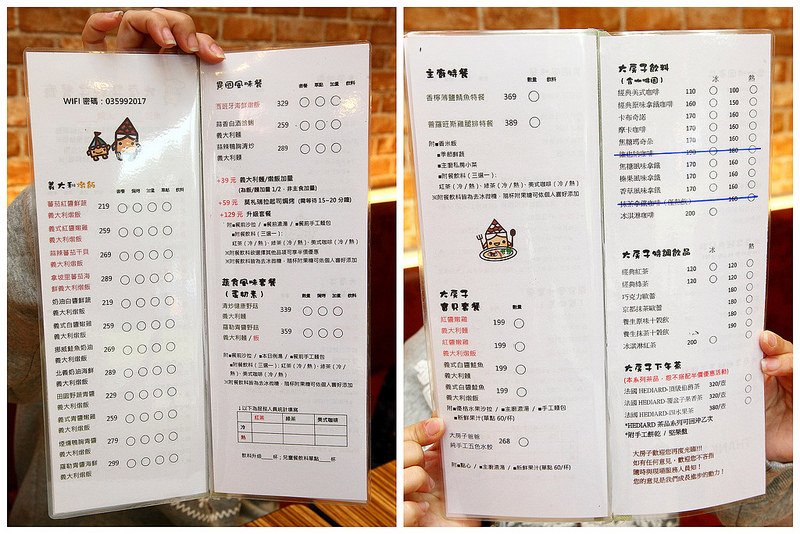 WIFI 密碼：035992017
義大利燉飯
套餐 單點 加量 飲料
蕃茄紅醬鮮蔬 219
義大利燉飯
義式紅醬嫩雞 259
義大利燉飯
蒜辣蕃茄干貝 269
義大利燉飯
拿坡里蕃茄海 289
鮮義大利燉飯
奶油白醬鮮蔬 219
義大利燉飯
義式白醬嫩雞 259
義大利燉飯
挪威鮭魚奶油 269
義大利燉飯
北義奶油海鮮 289
義大利燉飯
田園野蔬青醬 229
義大利燉飯
義式青醬嫩雞 259
義大利燉飯
煙燻鴨胸青醬 279
義大利燉飯
羅勒青醬海鮮 299
義大利燉飯
異國風味餐
套餐 單點 加量 飲料
西班牙海鮮燉飯 329
蒜香白酒蛤蜊 259
義大利麵
蒜辣鴨胸清炒 289
義大利麵
+39 元 義大利麵/燉飯加量
(為飯/麵加量 1/2，非主食加量)
+59 元 莫札瑞拉起司焗烤 (需等待 15~20 分鐘)
+129 元 升級套餐
附■餐前沙拉 / ■餐前濃湯 / ■餐前手工麵包
■附餐飲料（三選一）：
紅茶（冷 / 熱）、綠茶（冷 / 熱）、美式咖啡（冷 / 熱）
※附餐飲料欲選擇其他品項可享半價優惠
※附餐飲料皆為去冰微糖，隨杯附果糖可依個人喜好添加
蔬食風味套餐
(蛋奶素)
數量 焗烤 加量 飲料
清炒健康野菇 339
義大利麵
羅勒青醬野菇 359
義大利麵 / 飯
附■餐前沙拉 / ■本日例湯 / ■餐前手工麵包
■附餐飲料（三選一）：紅茶（冷 / 熱）、綠茶（冷 / 熱）、美式咖啡（冷 / 熱）
※附餐飲料皆為去冰微糖，隨杯附果糖可依個人喜好添加
以下為服務人員統計填寫
紅茶 綠茶 美式咖啡
冷
熱
飲料升級____杯；兒童餐飲料單點____杯
主廚特餐
數量 飲料
香檸薄鹽鯖魚特餐 369
普羅旺斯雞腿排特餐 389
附■香米飯
■季節鮮蔬
■主廚私房小菜
■附餐飲料（三選一）：
紅茶（冷 / 熱）、綠茶（冷 / 熱）、美式咖啡（冷 / 熱）
※附餐飲料皆為去冰微糖，隨杯附果糖可依個人喜好添加
大房子
寶貝套餐
數量
紅醬嫩雞 199
義大利麵
紅醬嫩雞 199
義大利燉飯
義式白醬鮭魚 199
義大利麵
義式白醬鮭魚 199
義大利燉飯
附■桑格水果沙拉 / ■主廚濃湯 / ■手工麵包
■新鮮果汁(單點 60/杯)
大房子爸爸 268
純手工五色水餃
附■點心 / ■主廚濃湯 / ■新鮮果汁(單點 60/杯)
大房子飲料
(含咖啡因)
冰 熱
經典美式咖啡 110 100
經典原味拿鐵咖啡 160 150
卡布奇諾 170 160
摩卡咖啡 170 160
焦糖瑪奇朵 170 160
維也納咖啡 190 180
焦糖風味拿鐵 170 160
榛果風味拿鐵 170 160
香草風味拿鐵 170 160
冰淇淋咖啡 200
大房子特調飲品
冰 熱
經典紅茶 120 120
經典綠茶 120 120
巧克力歐蕾 180
京都抹茶歐蕾 180
養生原味十穀飲 180
養生抹茶十穀飲 190
冰淇淋紅茶 200
大房子下午茶
(本系列茶品，恕不搭配半價優惠活動)
法國 HEDIARD-頂級伯爵茶 320/壺
法國 HEDIARD-覆盆子果香茶 320/壺
法國 HEDIARD-四水果茶 380/壺
*HEDIARD 茶品系列可回沖乙次
*附手工餅乾 / 堅果盤
大房子歡迎您再度光臨!!!
如有任何意見，歡迎您不吝指
隨時與現場服務人員知！
您的意見是我們成長進步的動力！